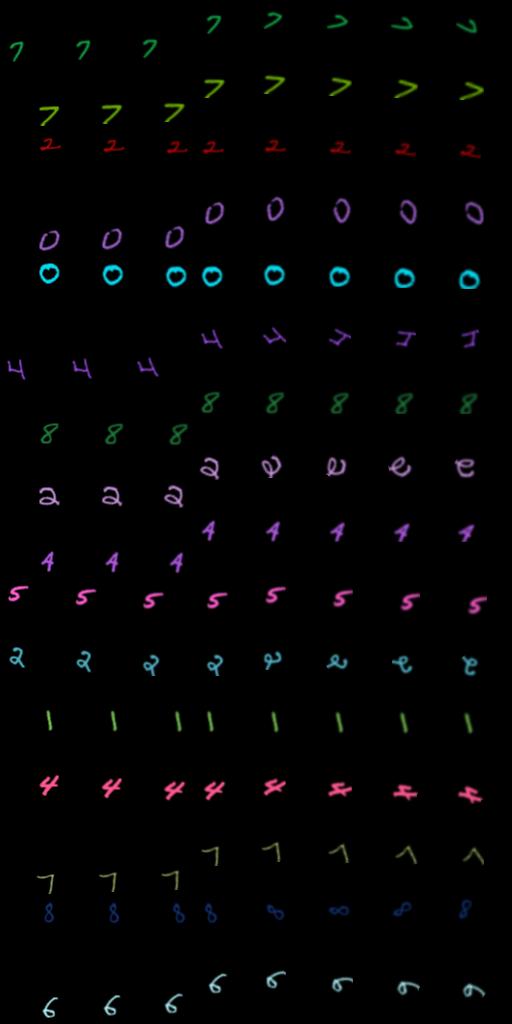 7 7 7 7 7 7 7 7
7 7 7 7 7 7 7 7
2 2 2 2 2 2 2 2
0 0 0 0 0 0 0 0
0 0 0 0 0 0 0 0
4 4 4 4 4 4 4 4
8 8 8 8 8 8 8 8
2 2 2 2 2 2 2 2
4 4 4 4 4 4 4 4
5 5 5 5 5 5 5 5
2 2 2 2 2 2 2 2
1 1 1 1 1 1 1 1
4 4 4 4 4 4 4 4
7 7 7 7 7 7 7 7
8 8 8 8 8 8 8 8
6 6 6 6 6 6 6 6